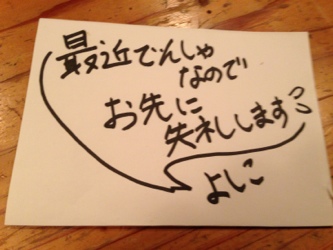 最近でんしゃ
なので
お先に
失礼します
よしこ